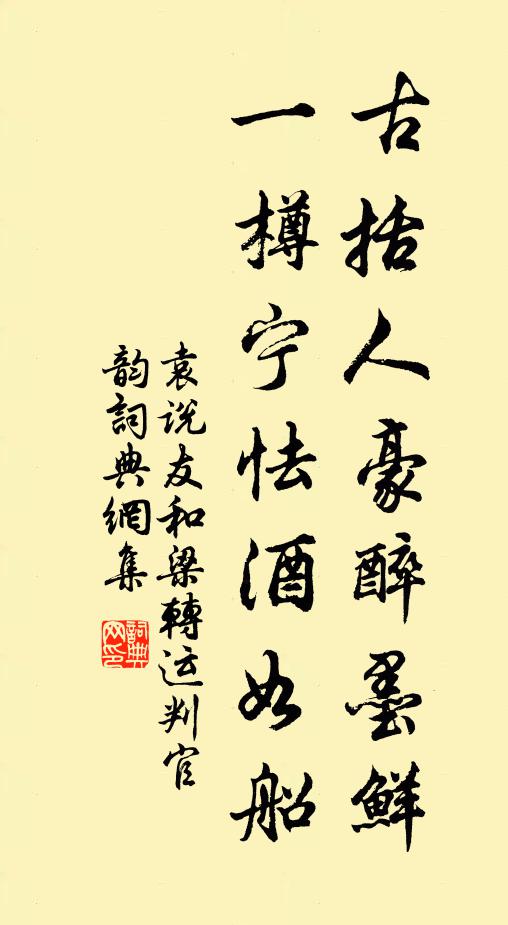 古括人豪醉墨鮮
一樽宁怯酒如船
袁说友和梁轉运判官
韵詞典網集
詞典网印